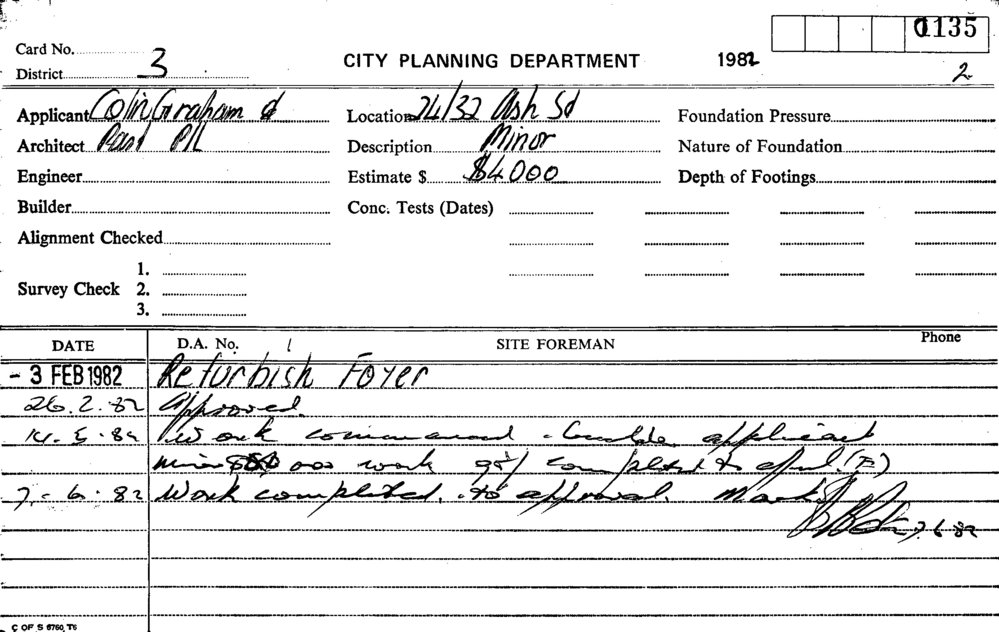 0135
Card No.
3
District
CITY PLANNING DEPARTMENT
1982
2
Applicant Colin Graham &
Location 24/32 Ash St
Foundation Pressure
Architect P/L
Description Minor
Nature of Foundation
Engineer
Estimate $ $4000
Depth of Footings
Builder
Conc. Tests (Dates)
Alignment Checked
1.
Survey Check 2.
3.
DATE
D.A. No.
SITE FOREMAN
Phone
- 3 FEB 1982 Refurbish Foyer
26.2.82 Approved.
14.5.82 Work applicant
work completed to
7.6.82 Work completed to approval.
7.6.82
C OF S 6760 T6